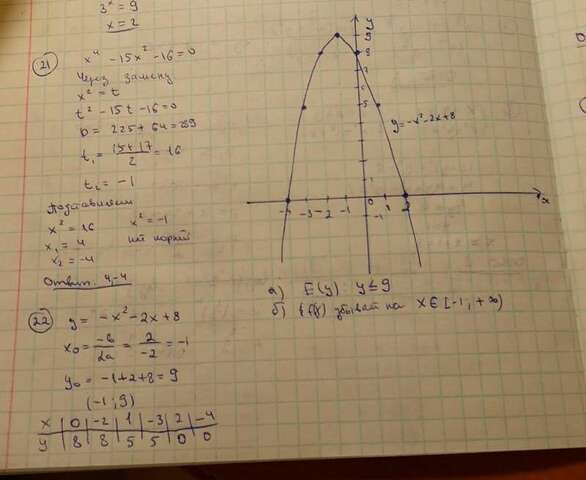 3ˣ = 9
x = 2
21
x⁴ - 15x² - 16 = 0
Через замену
x² = t
t² - 15t - 16 = 0
D = 225 + 64 = 289
t₁ = (15+17)/2 = 16
t₂ = -1
Подставляем
x² = 16 x² = -1
x₁ = 4 нет корней
x₂ = -4
Ответ. 4, -4
22
y = -x² - 2x + 8
x₀ = -b/2a = 2/-2 = -1
y₀ = -1+2+8 = 9
(-1; 9)
x 0 -2 1 -3 2 -4
y 8 8 5 5 0 0
y
9
8
7
5
y = -x² - 2x + 8
1
-4 -3 -2 -1 0 1 2 x
-1
а) E(y): y ≤ 9
б) f(x) убывает на x ∈ [-1; +∞)